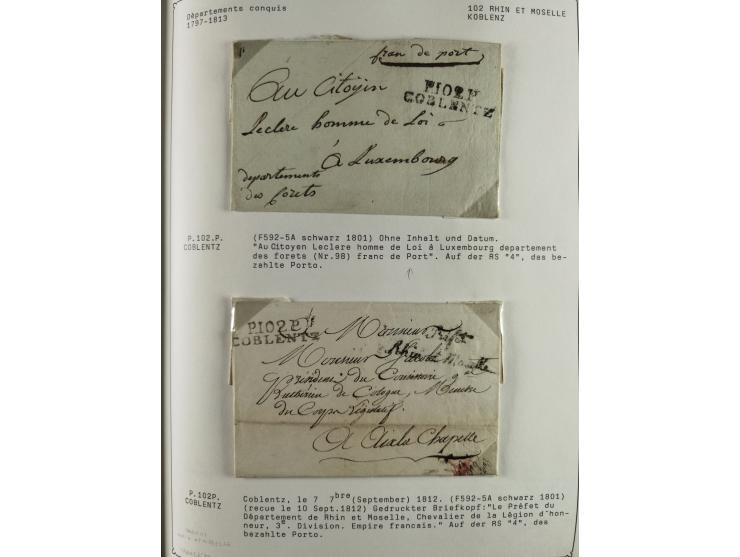 Départements conquis
1797-1813
102 RHIN ET MOSELLE
KOBLENZ
fran de port
P.102.P.
COBLENTZ
Au Citoÿin
Leclere homme de Loi
à Luxembourg
departements
des forets
P.102.P.
COBLENTZ
(F592-5A schwarz 1801) Ohne Inhalt und Datum.
"Au Citoyen Leclere homme de Loi â Luxembourg departement
des forets (Nr.98) franc de Port". Auf der RS "4", das be-
zahlte Porto.
P.102.P.
COBLENTZ
A Monsieur
Préfet
Monsieur
Rhin et Moselle
Président du Consistoire
de Cologne, Membre
du Corps Législatif.
A Aix la Chapelle
P.102P.
COBLENTZ
Coblentz, le 7 7bre (September) 1812. (F592-5A schwarz 1801)
(recue le 10 Sept.1812) Gedruckter Briefkopf:"Le Préfet du
Département de Rhin et Moselle, Chevalier de la Légion d'hon-
neur, 3e. Division. Empire francais." Auf der RS "4", das
bezahlte Porto.